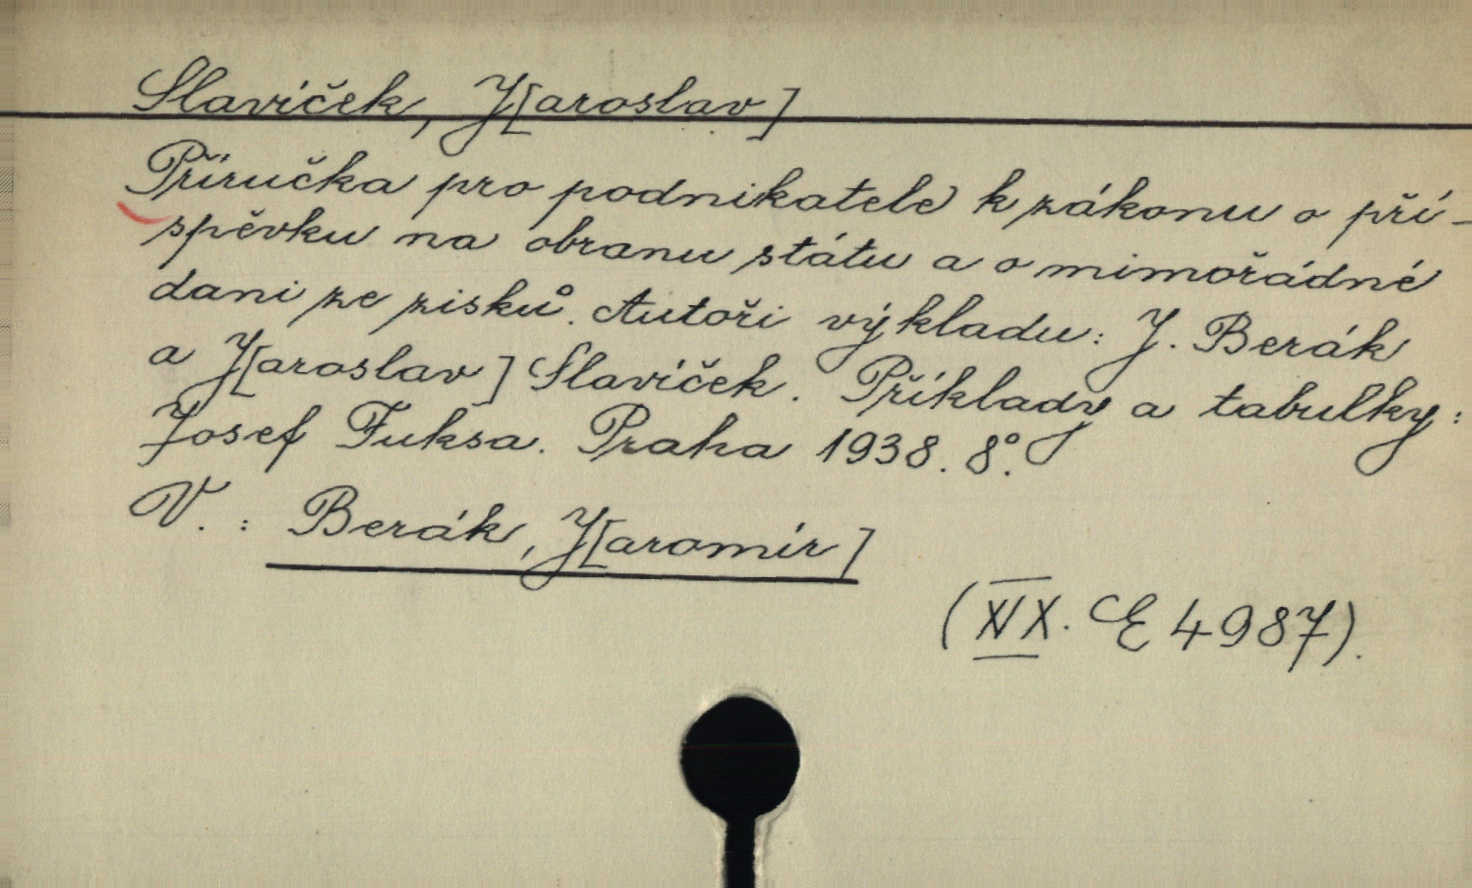 Slavíček, J[aroslav]
Příručka pro podnikatele k zákonu o pří-
spěvku na obranu státu a o mimořádné
dani ze zisků. Autoři výkladu: J. Berák
a J[aroslav] Slavíček. Příklady a tabulky:
Josef Fuksa. Praha 1938. 8°.
V. : Berák, J[aromír]
(XIX. E 4987).